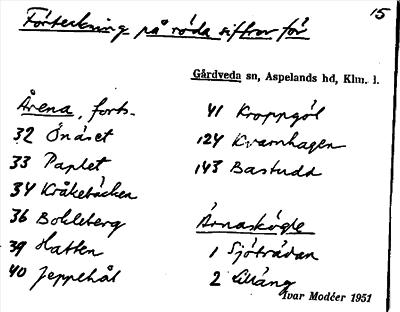 15
Förteckning på röda siffror för
Gårdveda sn, Aspelands hd, Klm. l.
Årena, forts.
32 Önäset
33 Paplet
34 Kråkebäcken
36 Bohleberg
39 Hatten
40 Jeppehål
41 Kroppgöl
124 Kvarnhagen
143 Bastudd
Årnaskögle
1 Sjöträdan
2 Lillång
Ivar Modéer 1951